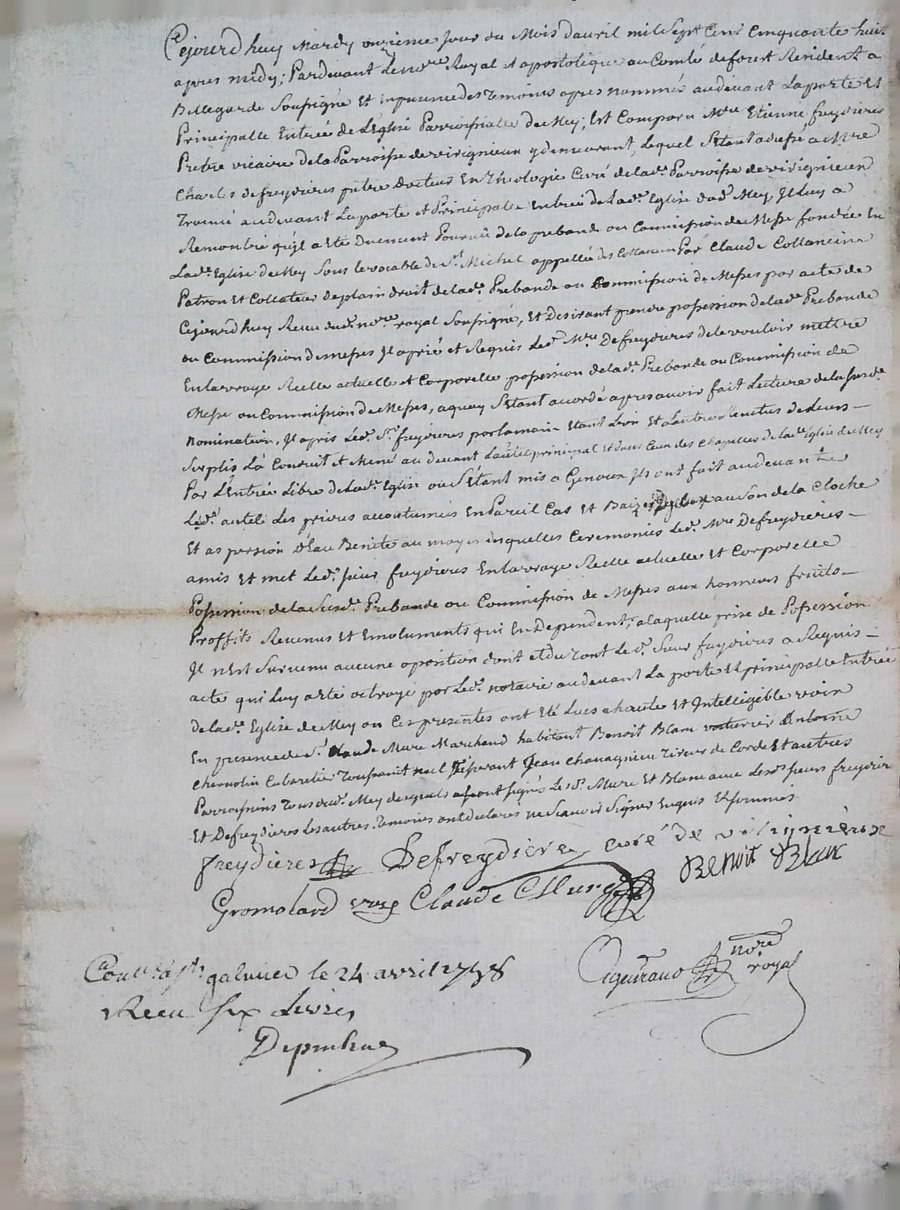 Cejourd'huy Mardy onzieme Jour du Mois d'avril mil Sept Cent Cinquante huit
apres midy, Pardevant Le nore Royal et apostolique au Comté de forest Resident a
Bellegarde Soussigné Et en presence des temoins apres nommés audevant La porte Et
Principalle Entrée de L'Eglise Parroissialle de Mey, Est Comparu Mre Etienne freydieres
Prêtre vicaire de la Parroisse de virignieux y demeurant, Lequel S'etant adressé a Mre
Charles defreydieres prêtre Docteur En Theologie Curé de lade Parroisse de virignieux
Trouvé audevant La porte et Principalle Entrée de Lade Eglise dud Mey, Il Luy a
Remontré qu'il a eté Duement Pourvû de la prebande ou Commission de Messe fondée En
Lade Eglise de Mey Sous le vocable de St Michel appellée des Par Claude
Patron Et Collateur de plain droit de lade Prebande ou Commission de Messes par acte de
Cejourd'huy Receu dud nore royal Soussigné, Et Desirant prendre possession de lade Prebande
ou Commission de messes Il a prié et Requis Led Mre Defreydieres de le vouloir mettre
En la vraye Reelle actuelle et Corporelle possession de lade Prebande ou Commission de
Messe ou Commission de Messes, a quoy S'etant accordé apres avoir fait Lecture de la Susde
nomination, Il a pris Led Sr freydieres par la main Etant L'un et L'autre de Leurs
Surplis L'a Conduit et Mené audevant L'autel principal Et dans L'une des Chapelles de lade Eglise de Mey
Par L'Entrée Libre de Lade Eglise ou S'Etant mis a Genoux Ils ont fait audevant
Led autel Les prieres accoutumées En Pareil Cas Et au Son de la Cloche
Et aspersion d'Eau Benite au moyen desquelles Ceremonies Led Mre Defreydieres
a mis et met Led Sieur freydieres En la vraye Reelle actuelle Et Corporelle
Possession de la Susde Prebande ou Commission de Messes aux honneurs fruits
Proffits Revenus Et Emoluments qui En Dependent; a laquelle prise de Possession
Il n'Est Survenu aucune oposition dont et du tout Led Sieur freydieres a Requis
acte qui Luy a eté octroyé par Led notaire audevant La porte Et principalle Entrée
de lade Eglise de Mey ou Ces presentes ont Eté Lues a haute et Intelligible voix
En presence de Sr Claude Mure Marchand habitant Benoit Blanc voiturier Antoine
Cabaretier Toussaint Jean Tireur de Corde Et autres
Parroissiens Tous dud Mey desquels ont Signé Led Sr Mure Et Blanc avec Leds Sieurs freydieres
Et Defreydieres Les autres Temoins ont declarés ne Scavoir Signer Enquis Et Sommés
freydieres Defreydieres curé de virignieux
Gromolard Claude Mure Benoit Blanc
nore royal
St galmier le 24 avril 1758
Receu Six Livres